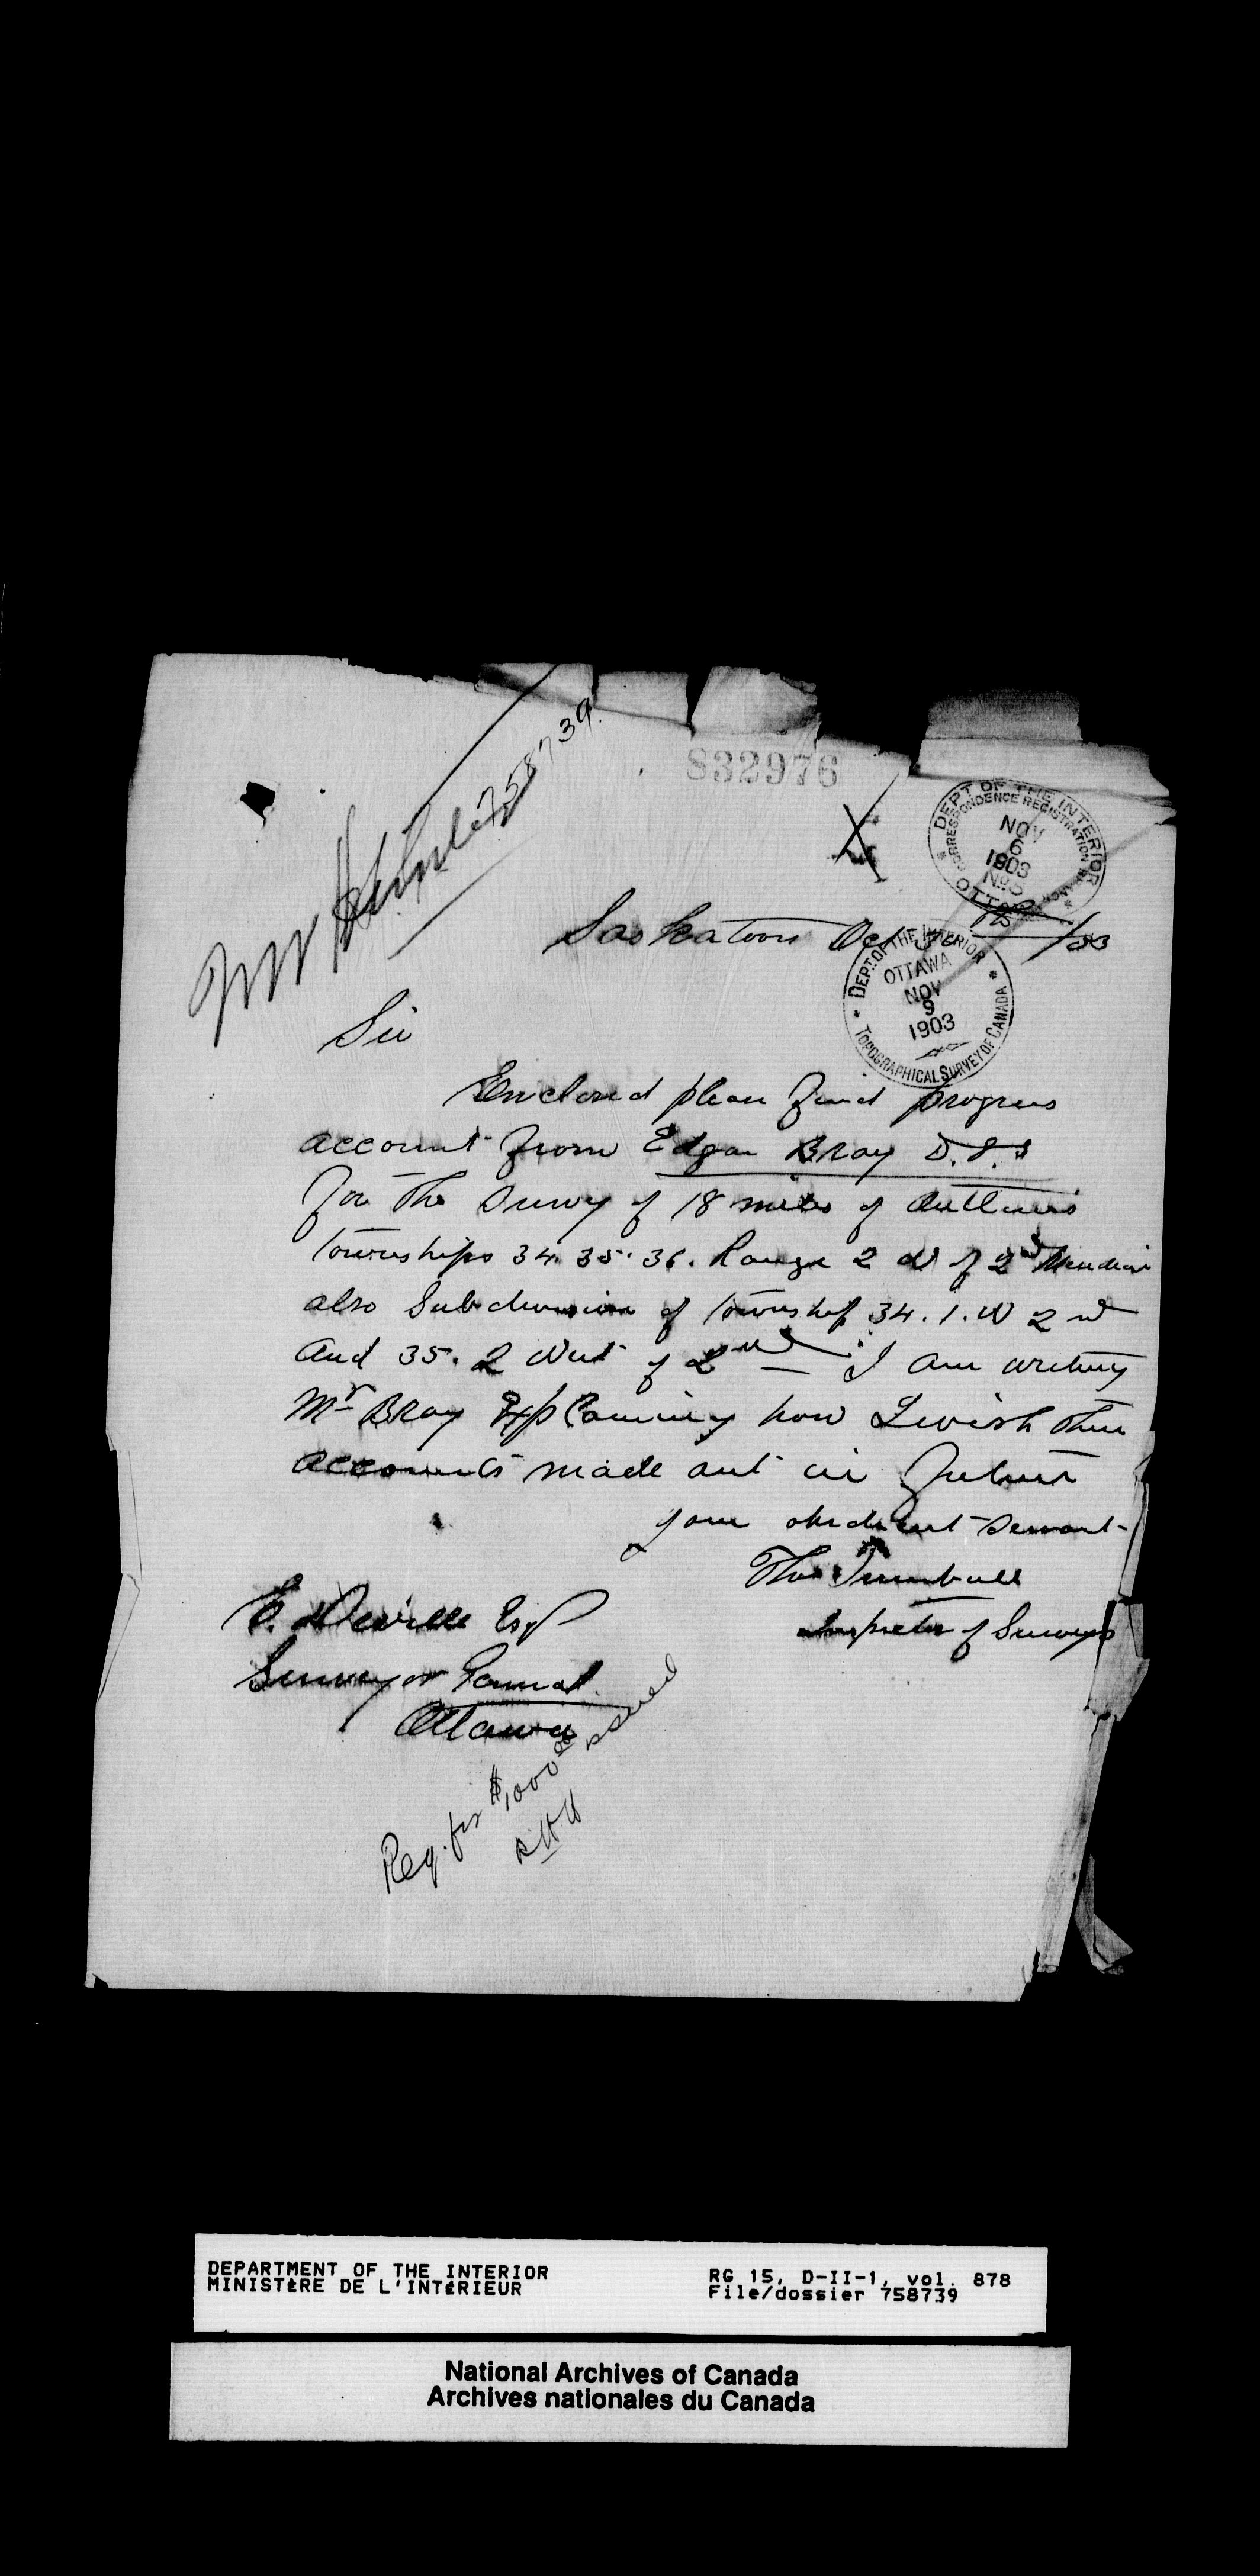 758739
832976
DEPT OF THE INTERIOR
CORRESPONDENCE REGISTRATION
NOV
6
1903
No 5
OTTAWA
Saskatoon Oct /03
DEPT. OF THE INTERIOR
OTTAWA
NOV
9
1903
TOPOGRAPHICAL SURVEY OF CANADA
Sir
Enclosed please find progress
account from Edgar Bray D.L.S
for the survey of 18 miles of Outlines
townships 34. 35. 36. Range 2 W of 2nd Meridian
also Subdivision of township 34. 1. W 2nd
and 35. 2 West of 2nd I am writing
Mr Bray Explaining how I wish these
accounts made out in future
your obedient servant
Thos Turnbull
Inspector of Surveys
E. Deville Esq
Surveyor General
Ottawa
Req. for $1,000 00 issued
DEPARTMENT OF THE INTERIOR
MINISTÈRE DE L'INTÉRIEUR
RG 15, D-II-1, vol. 878
File/dossier 758739
National Archives of Canada
Archives nationales du Canada